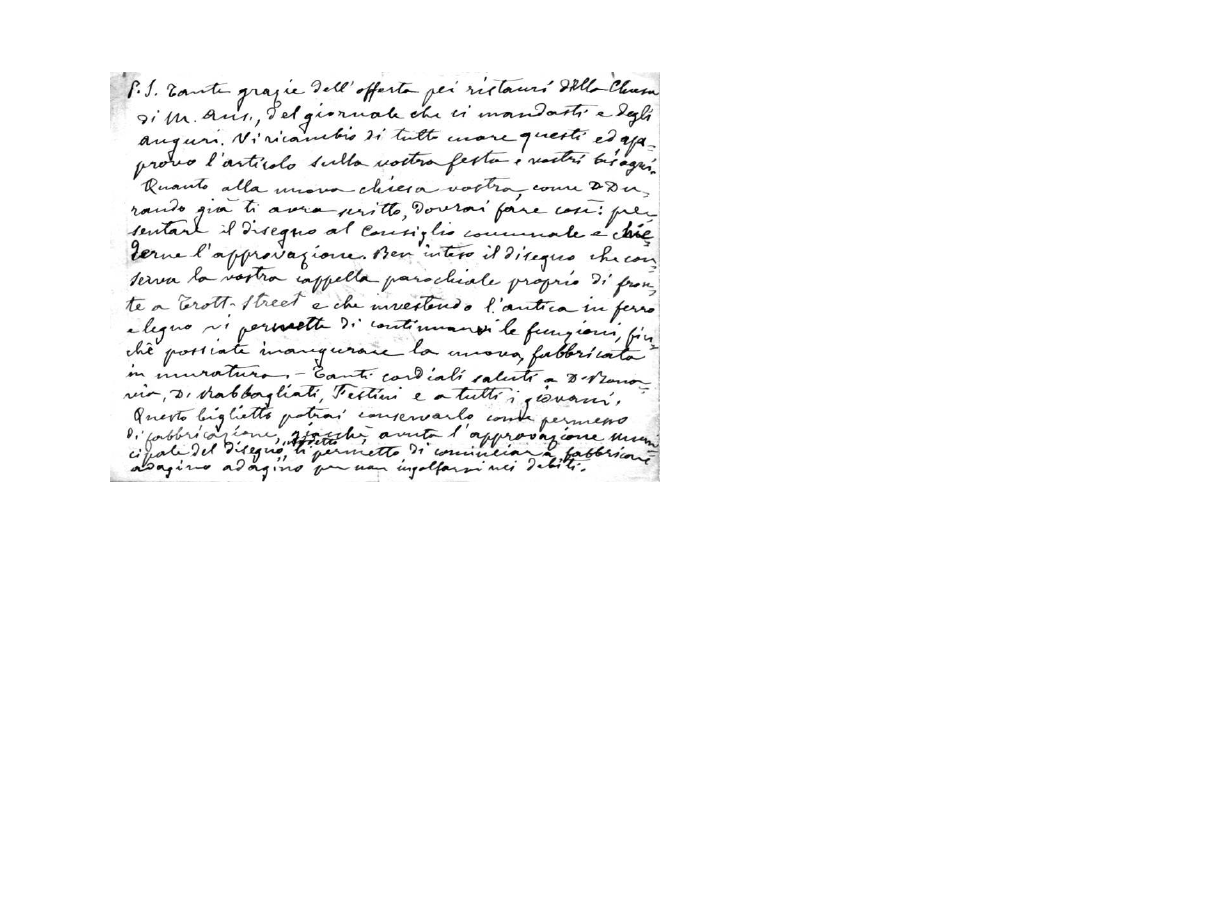 P. S. Tante grazie dell'offerta pei ristauri della Chiesa
di M. Aus., del giornale che ci mandasti e degli
auguri. Vi ricambio di tutto cuore questi ed ap-
provo l'articolo sulla vostra festa e vostri bisogni.
Quanto alla nuova chiesa vostra, come D. Du-
rando già ti avrà scritto, dovrai fare così: pre-
sentare il disegno al Consiglio comunale e chie-
derne l'approvazione. Ben inteso il disegno che con-
serva la vostra cappella parochiale proprio di fron-
te a Trott-Street e che investendo l'antica in ferro
e legno vi permette di continuarvi le funzioni, fin-
chè possiate inaugurare la nuova, fabbricata
in muratura. - Tanti cordiali saluti a D.
D. Rabbagliati, Festini e a tutti i giovani.
Questo biglietto potrai conservarlo come permesso
di fabbricazione, giacchè, avuta l'approvazione muni-
cipale del disegno, ti permetto di cominciar a fabbricare
adagino adagino per non ingolfarvi nei debiti.